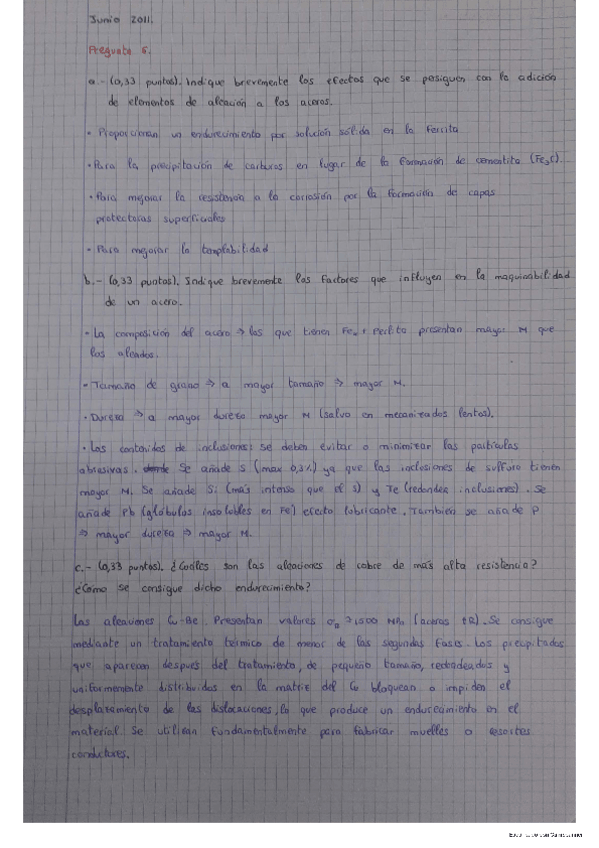 Junio 2011.
Pregunta 6.
a.- (0,33 puntos). Indique brevemente los efectos que se persiguen con la adición
de elementos de aleación a los aceros.
- Proporcionan un endurecimiento por solución sólida en la ferrita
- Para la precipitación de carburos en lugar de la formación de cementita (Fe3C).
- Para mejorar la resistencia a la corrosión por la formación de capas
protectoras superficiales
- Para mejorar la templabilidad
b.- (0,33 puntos). Indique brevemente los factores que influyen en la maquinabilidad
de un acero.
- La composición del acero → los que tienen Fe y Perlita presentan mayor M que
los aleados.
- Tamaño de grano → a mayor tamaño → mayor M.
- Dureza → a mayor dureza mayor M (salvo en mecanizados lentos).
- Los contenidos de inclusiones: se deben evitar o minimizar las partículas
abrasivas. Se añade S (max 0,3%) ya que las inclusiones de sulfuro tienen
mayor M. Se añade Se (más intenso que el S) y Te (redondea inclusiones). Se
añade Pb (glóbulos insolubles en Fe) efecto lubricante. También se añade P
→ mayor dureza → mayor M.
c.- (0,33 puntos). ¿Cuáles son las aleaciones de cobre de más alta resistencia?
¿Cómo se consigue dicho endurecimiento?
Las aleaciones Cu-Be. Presentan valores 1500 MPa (aceros). Se consigue
mediante un tratamiento térmico de de las segundas fases. Los precipitados
que aparecen después del tratamiento, de pequeño tamaño, redondeados y
uniformemente distribuidos en la matriz del Cu bloquean o impiden el
desplazamiento de las dislocaciones, lo que produce un endurecimiento en el
material. Se utilizan fundamentalmente para fabricar muelles o resortes
conductores.